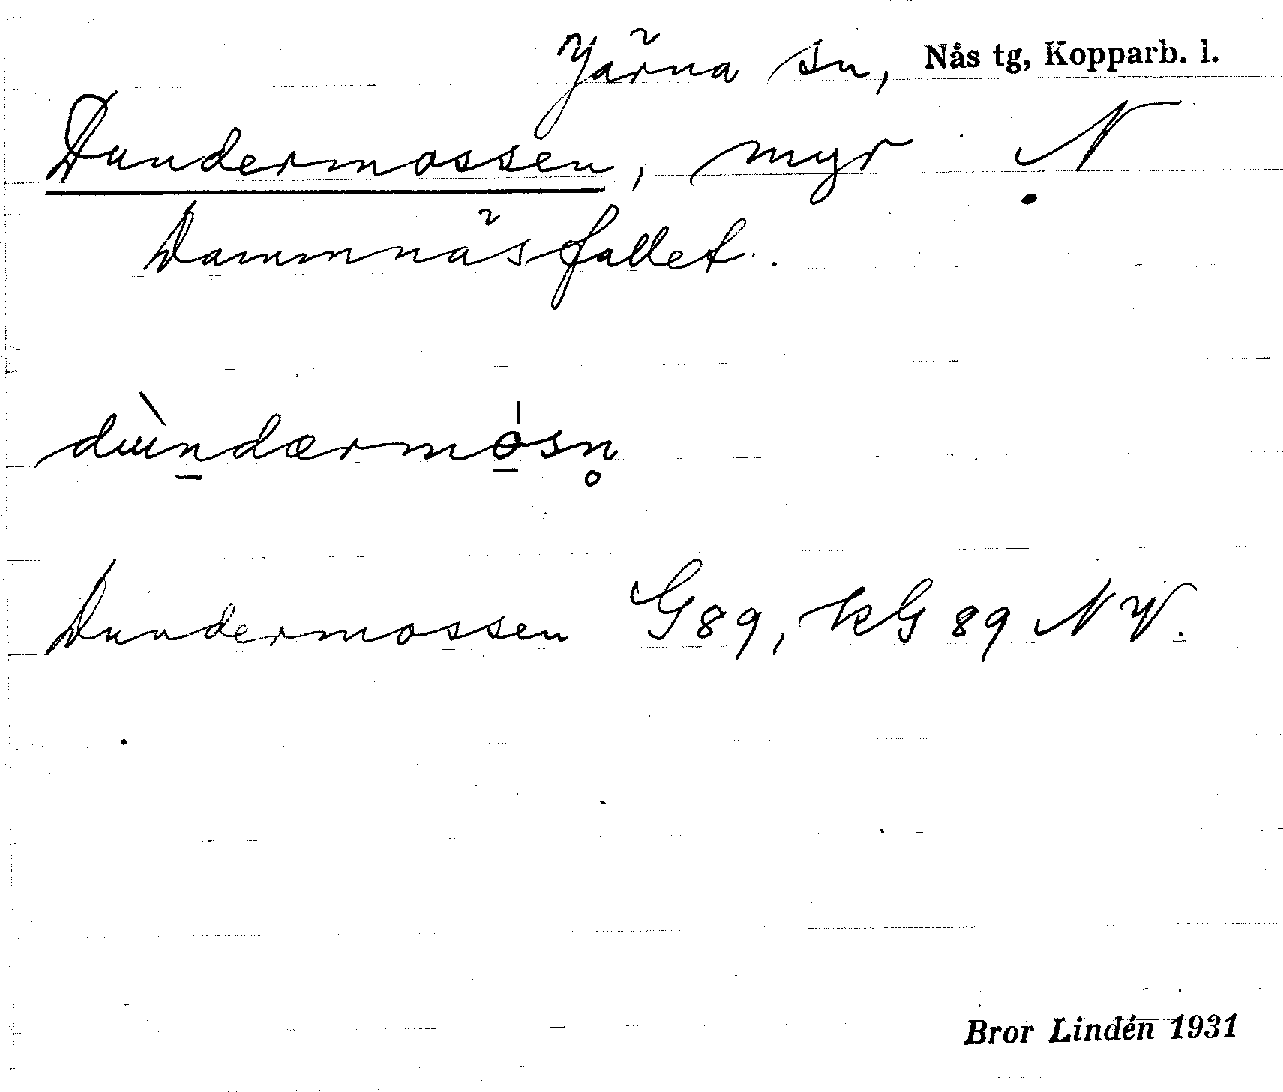 Järna sn, Nås tg, Kopparb. l.
Dundermossen, myr N
Dammnäsfallet.
dùndærmósn̥
Dundermossen G89, kG 89 NV.
Bror Lindén 1931